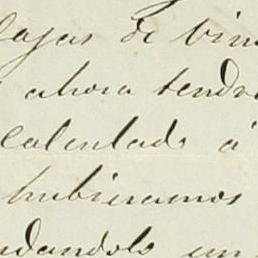 de
ahora tendr
calculado á
hubieramos
ndandolo un